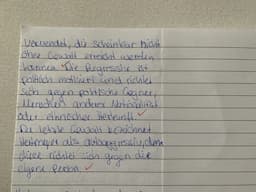 verwendet, die scheinbar nicht
ohne Gewalt erreicht werden
können. Die Aggression ist
politisch motiviert und richtet
sich gegen politische Gegner,
Menschen anderer Nationalität
oder ethnischer Herkunft.
Die letzte Gewalt bezeichnet
Heitmeyer als autoaggressiv, denn
diese richtet sich gegen die
eigene Person.